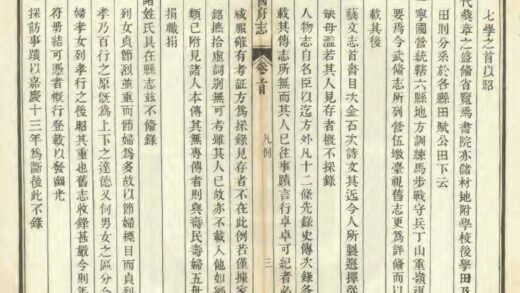 七學之首以昭
代典章之盛備省覽焉書院亦儲材地附學校後學田及
田則分采於各縣田賦公田下云
寧國營統轄六縣地方訓練馬步戰守兵丁山重嶺
要焉今武備志所列營伍墩臺視舊志更為詳備而以
載其後
藝文志首書目次金石次詩文其迄今人所製選擇從
缺毋濫若其人見存者概不採錄
人物志自名臣以迄方外凡十二條先錄史傳次錄各
載其傳志所無而其人已往事蹟言行卓卓可紀者必
國府志 卷首 凡例 三
咸服確有考証方為採錄見存者不在此例若僅據家
拾虛詞別無可考雖其人已故亦不載入他如鄉
類已附見諸人本傳其無專傳者則與壽民壽婦五世
捐職捐
諸姓氏具在縣志並不備錄
列女貞節烈並重而節婦為多故以節婦標目而貞烈
孝乃百行之原旣為上下之達德又何男女之區分今
婦孝女列孝行之後昭其重也舊志收錄甚嚴今則年
符册結可憑者概行登載以發幽光
採訪事蹟以嘉慶十三年為斷後此不錄